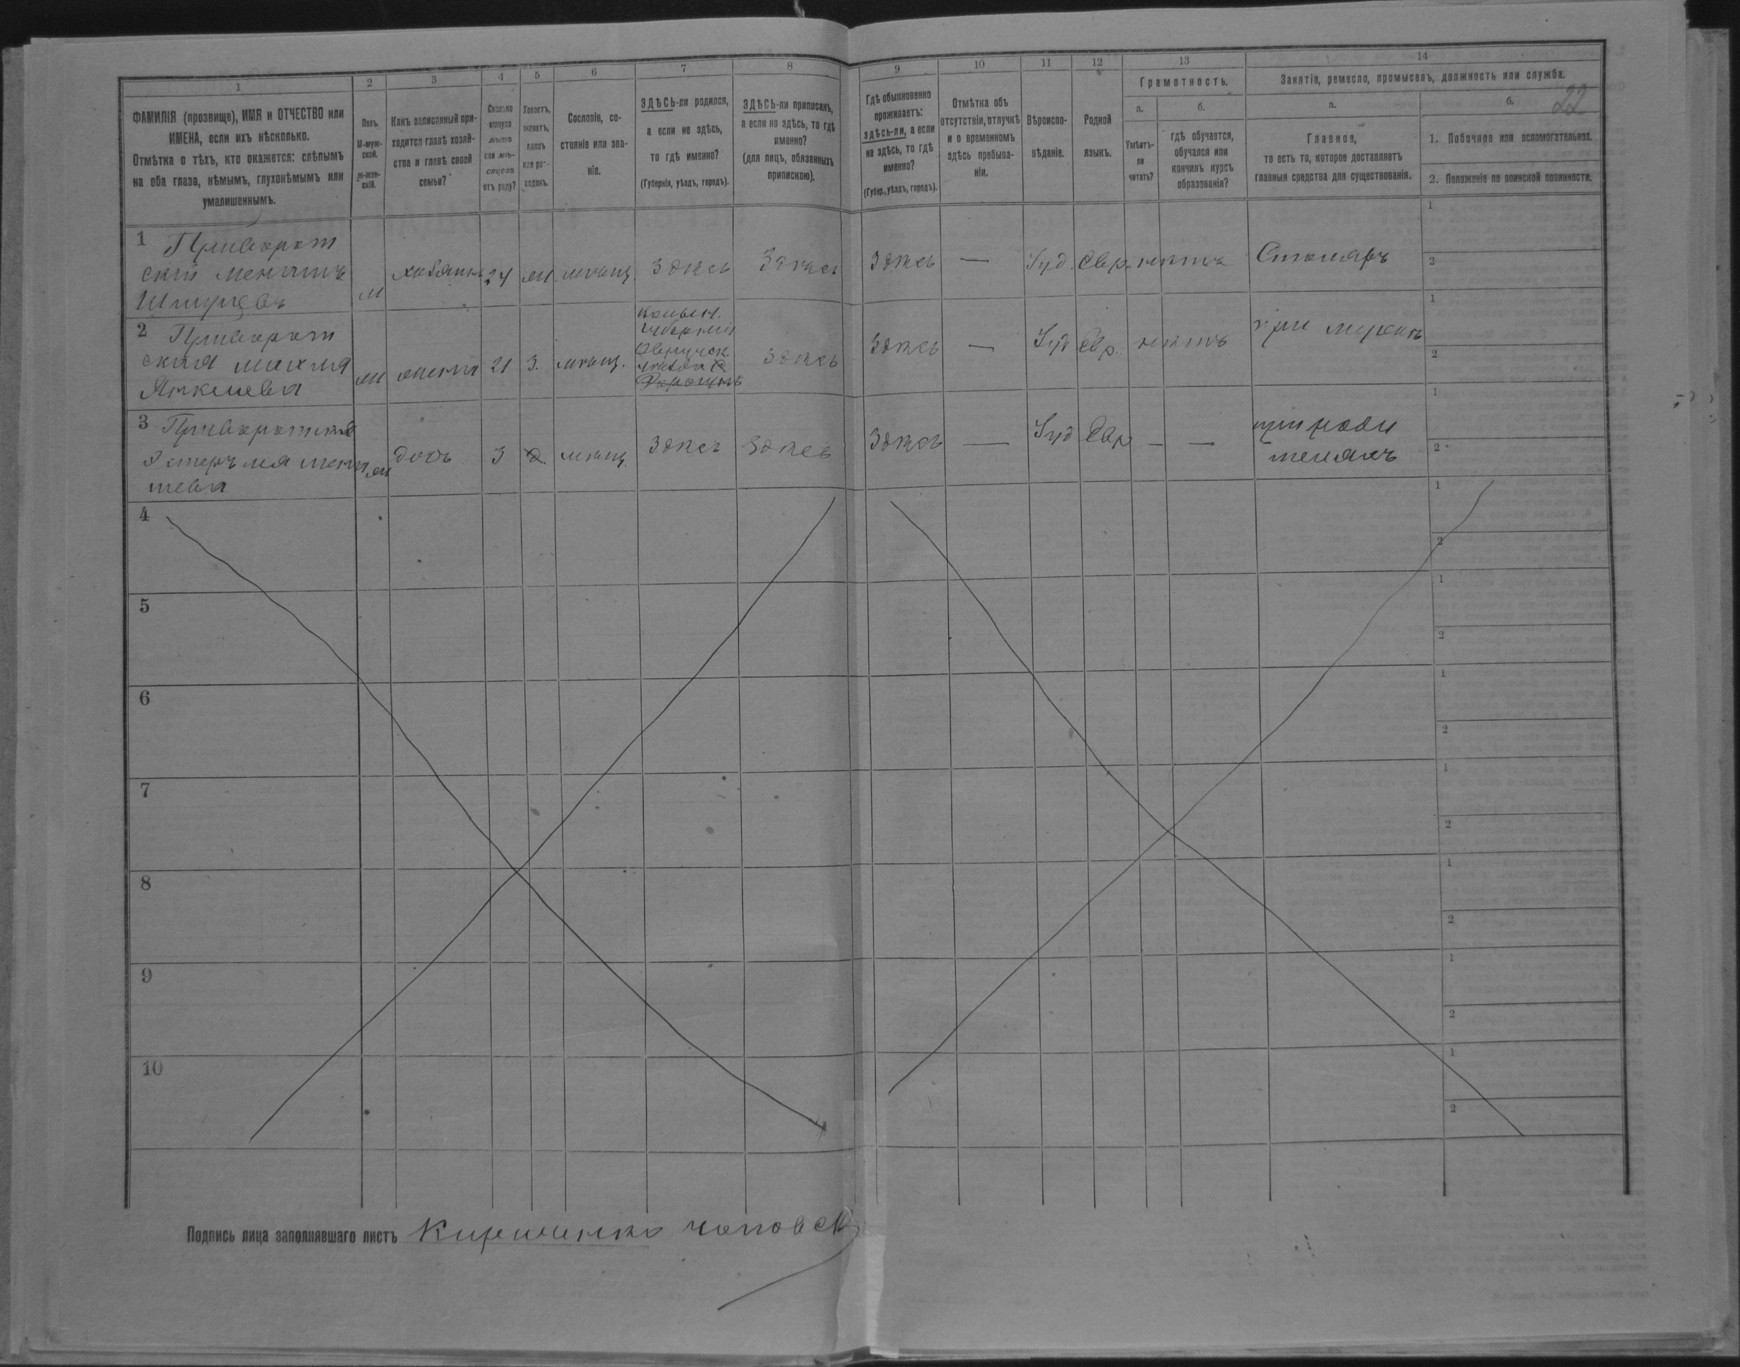 1 2 3 4 5 6 7 8 9 10 11 12 13 14
22
ФАМИЛІЯ (прозвище), ИМЯ и ОТЧЕСТВО или
ИМЕНА, если ихъ нѣсколько.
Отмѣтка о тѣхъ, кто окажется: слѣпымъ
на оба глаза, нѣмымъ, глухонѣмымъ или
умалишеннымъ.
Полъ.
М-муж-
ской.
Ж-жен-
скій.
Какъ записанный при-
ходится главѣ хозяй-
ства и главѣ своей
семьи?
Сколько
минуло
лѣтъ
или мѣ-
сяцевъ
отъ роду?
Холостъ,
женатъ,
вдовъ
или раз-
веденъ.
Сословіе, со-
стояніе или зва-
ніе.
ЗДѢСЬ-ли родился,
а если не здѣсь,
то гдѣ именно?
(Губернія, уѣздъ, городъ).
ЗДѢСЬ-ли приписанъ,
а если не здѣсь, то гдѣ
именно?
(для лицъ, обязанныхъ
припискою).
Гдѣ обыкновенно
проживаетъ:
здѣсь-ли, а если
не здѣсь, то гдѣ
именно?
(Губер., уѣздъ, городъ).
Отмѣтка объ
отсутствіи, отлучкѣ
и о временномъ
здѣсь пребыва-
ніи.
Вѣроиспо-
вѣданіе.
Родной
языкъ.
Грамотность.
а.
Умѣетъ-
ли
читать?
б.
гдѣ обучается,
обучался или
кончилъ курсъ
образованія?
Занятіе, ремесло, промыселъ, должность или служба.
а.
Главное,
то есть то, которое доставляетъ
главныя средства для существованія.
б.
1. Побочное или вспомогательное.
2. Положеніе по воинской повинности.
1 Приворот
скій
м хозяинъ 24 мѣщ. Здѣсь Здѣсь Здѣсь — Іуд. Евр. нѣтъ Столяръ
1
2
2 Приворот
ская
Янкелева
жена 21 З. мѣщ.
губерніи
Овруч.
Здѣсь Здѣсь — Іуд Евр. нѣтъ при мужѣ
1
2
3 Приворотская
дочь 3 мѣщ. Здѣсь Здѣсь Здѣсь — Іуд Евр — — при роди
теляхъ
1
2
4
1
2
5
1
2
6
1
2
7
1
2
8
1
2
9
1
2
10
1
2
Подпись лица заполнявшаго листъ